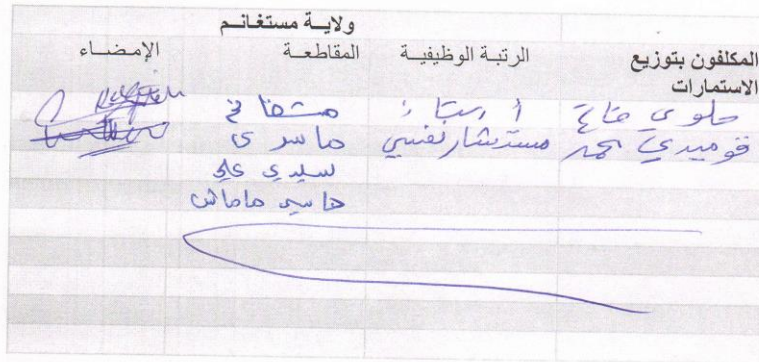 ولاية مستغانم
المكلفون بتوزيع الاستمارات الرتبة الوظيفية المقاطعة الإمضاء
حلوي أستاذ مستغانم
قوميدي محمد مستشار نفسي ماسرى
سيدي علي
حاسي ماماش